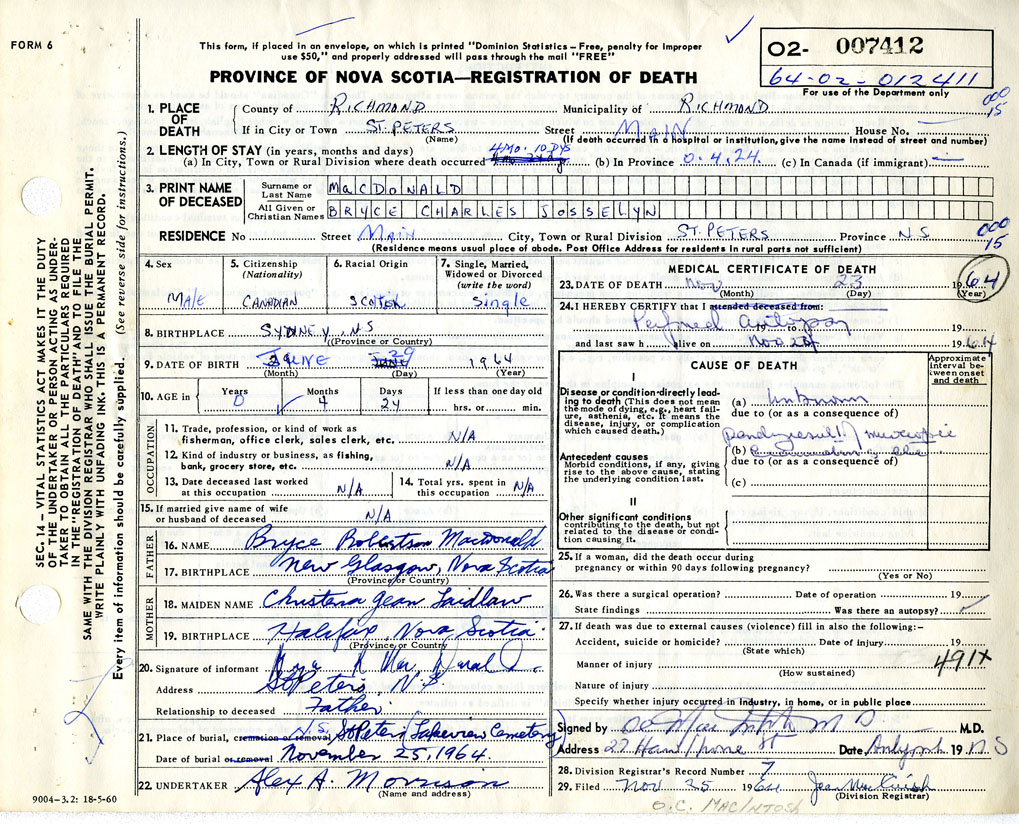 FORM 6
This form, if placed in an envelope, on which is printed "Dominion Statistics – Free, penalty for improper
use $50," and properly addressed will pass through the mail "FREE"
O2- 007412
64-02-012411
For use of the Department only
PROVINCE OF NOVA SCOTIA—REGISTRATION OF DEATH
000
15
1. PLACE OF DEATH
County of RICHMOND Municipality of RICHMOND
If in City or Town ST. PETERS Street MAIN House No.
(Name) (If death occurred in a hospital or institution, give the name instead of street and number)
2. LENGTH OF STAY (in years, months and days) 4 MO. 10 DYS
(a) In City, Town or Rural Division where death occurred (b) In Province 0.4.24. (c) In Canada (if immigrant) —
3. PRINT NAME OF DECEASED
Surname or Last Name MacDONALD
All Given or Christian Names BRYCE CHARLES JOSSELYN
RESIDENCE No Street MAIN City, Town or Rural Division ST. PETERS Province N S
000
15
(Residence means usual place of abode. Post Office Address for residents in rural parts not sufficient)
4. Sex Male
5. Citizenship (Nationality) CANADIAN
6. Racial Origin SCOTCH
7. Single, Married, Widowed or Divorced (write the word) Single
8. BIRTHPLACE SYDNEY, NS
(Province or Country)
9. DATE OF BIRTH 29 1964
(Month) (Day) (Year)
10. AGE in Years 0 Months 4 Days 24 If less than one day old hrs. or min.
OCCUPATION
11. Trade, profession, or kind of work as fisherman, office clerk, sales clerk, etc. N/A
12. Kind of industry or business, as fishing, bank, grocery store, etc. N/A
13. Date deceased last worked at this occupation N/A
14. Total yrs. spent in this occupation N/A
15. If married give name of wife or husband of deceased N/A
FATHER
16. NAME Bryce Robertson Macdonald
17. BIRTHPLACE New Glasgow, Nova Scotia
(Province or Country)
MOTHER
18. MAIDEN NAME Christena Jean Laidlaw
19. BIRTHPLACE Halifax, Nova Scotia
(Province or Country)
20. Signature of informant
Address St Peters, N.S.
Relationship to deceased Father
21. Place of burial, cremation or removal N.S. St Peters Lakeview Cemetery
Date of burial or removal November 25, 1964
22. UNDERTAKER Alex A. Morrison
(Name and address)
9004-3.2: 18-5-60
MEDICAL CERTIFICATE OF DEATH
23. DATE OF DEATH Nov 23 1964
(Month) (Day) (Year)
24. I HEREBY CERTIFY that I attended deceased from:
Perfmed autopsy to 19
and last saw h alive on Nov 24 1964
CAUSE OF DEATH
Approximate interval between onset and death
I
Disease or condition directly leading to death (This does not mean the mode of dying, e.g., heart failure, asthenia, etc. It means the disease, injury, or complication which caused death.)
(a) Unknown
due to (or as a consequence of)
Antecedent causes
Morbid conditions, if any, giving rise to the above cause, stating the underlying condition last.
(b)
due to (or as a consequence of)
(c)
II
Other significant conditions contributing to the death, but not related to the disease or condition causing it.
25. If a woman, did the death occur during
pregnancy or within 90 days following pregnancy?
(Yes or No)
26. Was there a surgical operation? Date of operation 19
State findings Was there an autopsy? ✓
27. If death was due to external causes (violence) fill in also the following:–
Accident, suicide or homicide? Date of injury 19
(State which)
Manner of injury 491X
(How sustained)
Nature of injury
Specify whether injury occurred in industry, in home, or in public place
Signed by M.D.
Address Date, 19 N S
28. Division Registrar's Record Number 7
29. Filed Nov 25 1964
(Division Registrar)
O.C. MACINTOSH
SEC. 14 – VITAL STATISTICS ACT MAKES IT THE DUTY
OF THE UNDERTAKER OR PERSON ACTING AS UNDERTAKER
TO OBTAIN ALL THE PARTICULARS REQUIRED
IN THE "REGISTRATION OF DEATH" AND TO FILE THE
SAME WITH THE DIVISION REGISTRAR WHO SHALL ISSUE THE BURIAL PERMIT.
WRITE PLAINLY WITH UNFADING INK. THIS IS A PERMANENT RECORD.
Every item of information should be carefully supplied. (See reverse side for instructions.)